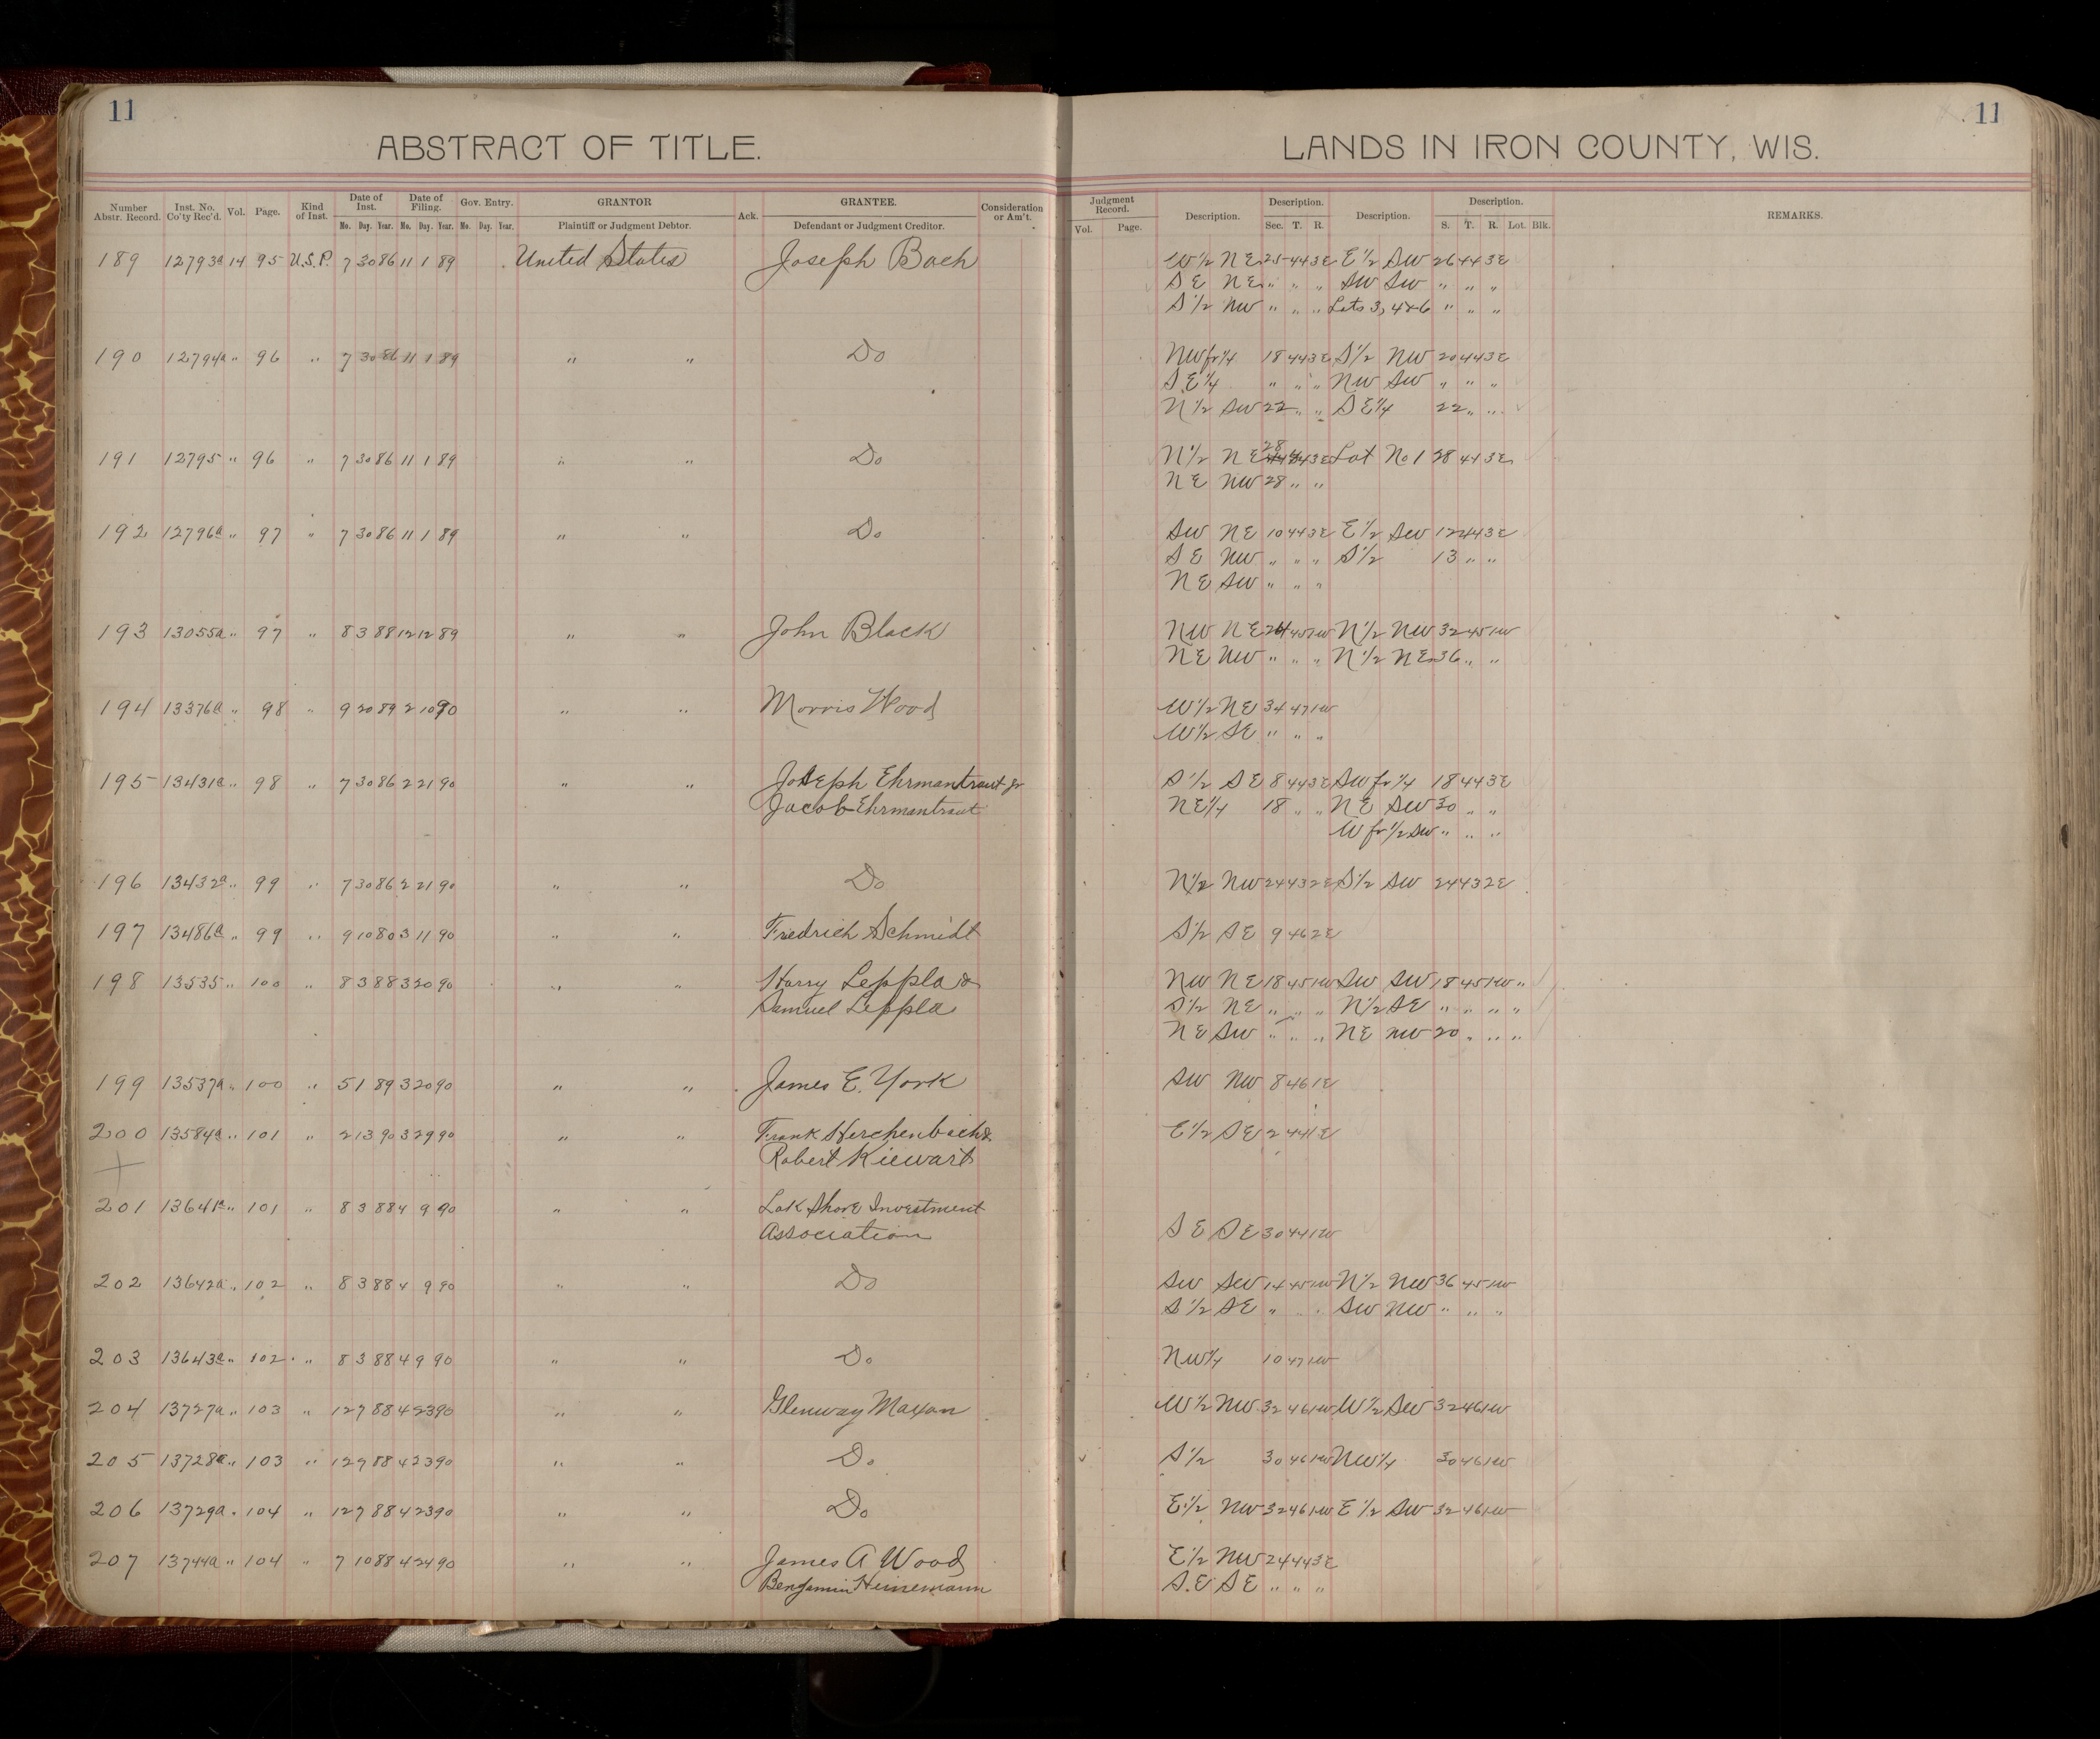 11
11
ABSTRACT OF TITLE. LANDS IN IRON COUNTY, WIS.
Number Abstr. Record. Inst. No. Co'ty Rec'd. Vol. Page. Kind of Inst. Date of Inst. Date of Filing. Gov. Entry. GRANTOR Ack. GRANTEE. Consideration or Am't. Judgment Record. Description. Description. Description. Description. REMARKS.
Mo. Day. Year. Mo. Day. Year. Mo. Day. Year. Plaintiff or Judgment Debtor. Defendant or Judgment Creditor. Vol. Page. Sec. T. R. S. T. R. Lot. Blk.
189 12793a 14 95 U.S.P. 7 30 86 11 1 89 United States Joseph Bach W 1/2 NE 25 44 3E E 1/2 SW 26 44 3E
SE NE " " " SW SW " " "
S 1/2 NW " " " Lots 3, 4 & 6 " " "
190 12794a " 96 " 7 30 86 11 1 89 " " Do NW fr 1/4 18 44 3E S 1/2 NW 20 44 3E
SE 1/4 " " " NW SW " " "
N 1/2 SW 22 " " SE 1/4 22 " "
191 12795 " 96 " 7 30 86 11 1 89 " " Do N 1/2 NE 28 44 3E Lot No 1 28 44 3E
NE NW 28 " "
192 12796a " 97 " 7 30 86 11 1 89 " " Do SW NE 10 44 3E E 1/2 SW 12 44 3E
SE NW " " " S 1/2 13 " "
NE SW " " "
193 13055a " 97 " 8 3 88 12 12 89 " " John Black NW NE 24 45 1W N 1/2 NW 32 45 1W
NE NW " " " N 1/2 NE 36 " "
194 13376a " 98 " 9 20 89 2 10 90 " " Morris Wood W 1/2 NE 34 47 1W
W 1/2 SE " " "
195 13431a " 98 " 7 30 86 2 21 90 " " Joseph Ehrmantraut Jr S 1/2 SE 8 44 3E SW fr 1/4 18 44 3E
Jacob Ehrmantraut NE 1/4 18 " " NE SW 30 " "
W fr 1/2 SW " " "
196 13432a " 99 " 7 30 86 2 21 90 " " Do N 1/2 NW 24 43 2E S 1/2 SW 24 43 2E
197 13486a " 99 " 9 10 80 3 11 90 " " Fredrich Schmidt S 1/2 SE 9 46 2E
198 13535 " 100 " 8 3 88 3 20 90 " " Harry Leppla & NW NE 18 45 1W SW SW 18 45 1W "
Samuel Leppla S 1/2 NE " " " N 1/2 SE " " " "
NE SW " " " NE NW 20 " " "
199 13537a " 100 " 5 1 89 3 20 90 " " James E. York SW NW 8 46 1E
200 13584a " 101 " 2 13 90 3 29 90 " " Frank Herchenbach & E 1/2 SE 2 44 1E
Robert Kiewart
201 13641a " 101 " 8 3 88 4 9 90 " " Lak Shore Investment
Association SE SE 30 44 1W
202 13642a " 102 " 8 3 88 4 9 90 " " Do SW SW 14 45 1W N 1/2 NW 36 45 1W
S 1/2 SE " " " SW NW " " "
203 13643a " 102 " 8 3 88 4 9 90 " " Do NW 1/4 10 47 1W
204 13727a " 103 " 12 7 88 4 23 90 " " Glenway Maxon W 1/2 NW 32 46 1W W 1/2 SW 32 46 1W
205 13728a " 103 " 12 7 88 4 23 90 " " Do S 1/2 30 46 1W NW 1/4 30 46 1W
206 13729a " 104 " 12 7 88 4 23 90 " " Do E 1/2 NW 32 46 1W E 1/2 SW 32 46 1W
207 13744a " 104 " 7 10 88 4 24 90 " " James A Wood E 1/2 NW 24 44 3E
Benjamin Heinemann S.E SE " " "